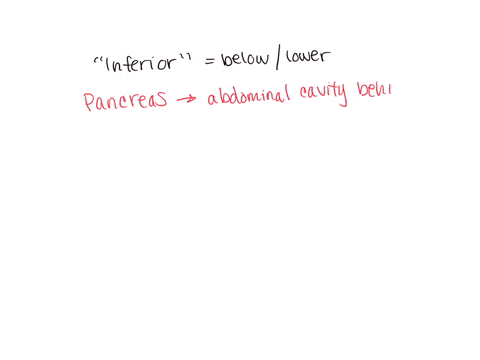 "Inferior" = below/lower
Pancreas → abdominal cavity behi